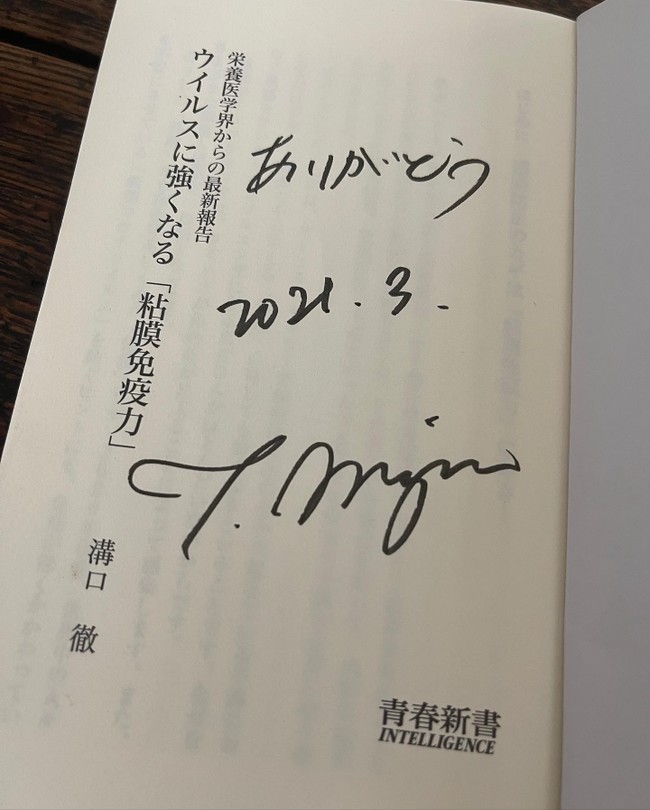 栄養医学界からの最新報告
ウイルスに強くなる「粘膜免疫力」
溝口 徹
ありがとう
2021.3.
青春新書
INTELLIGENCE